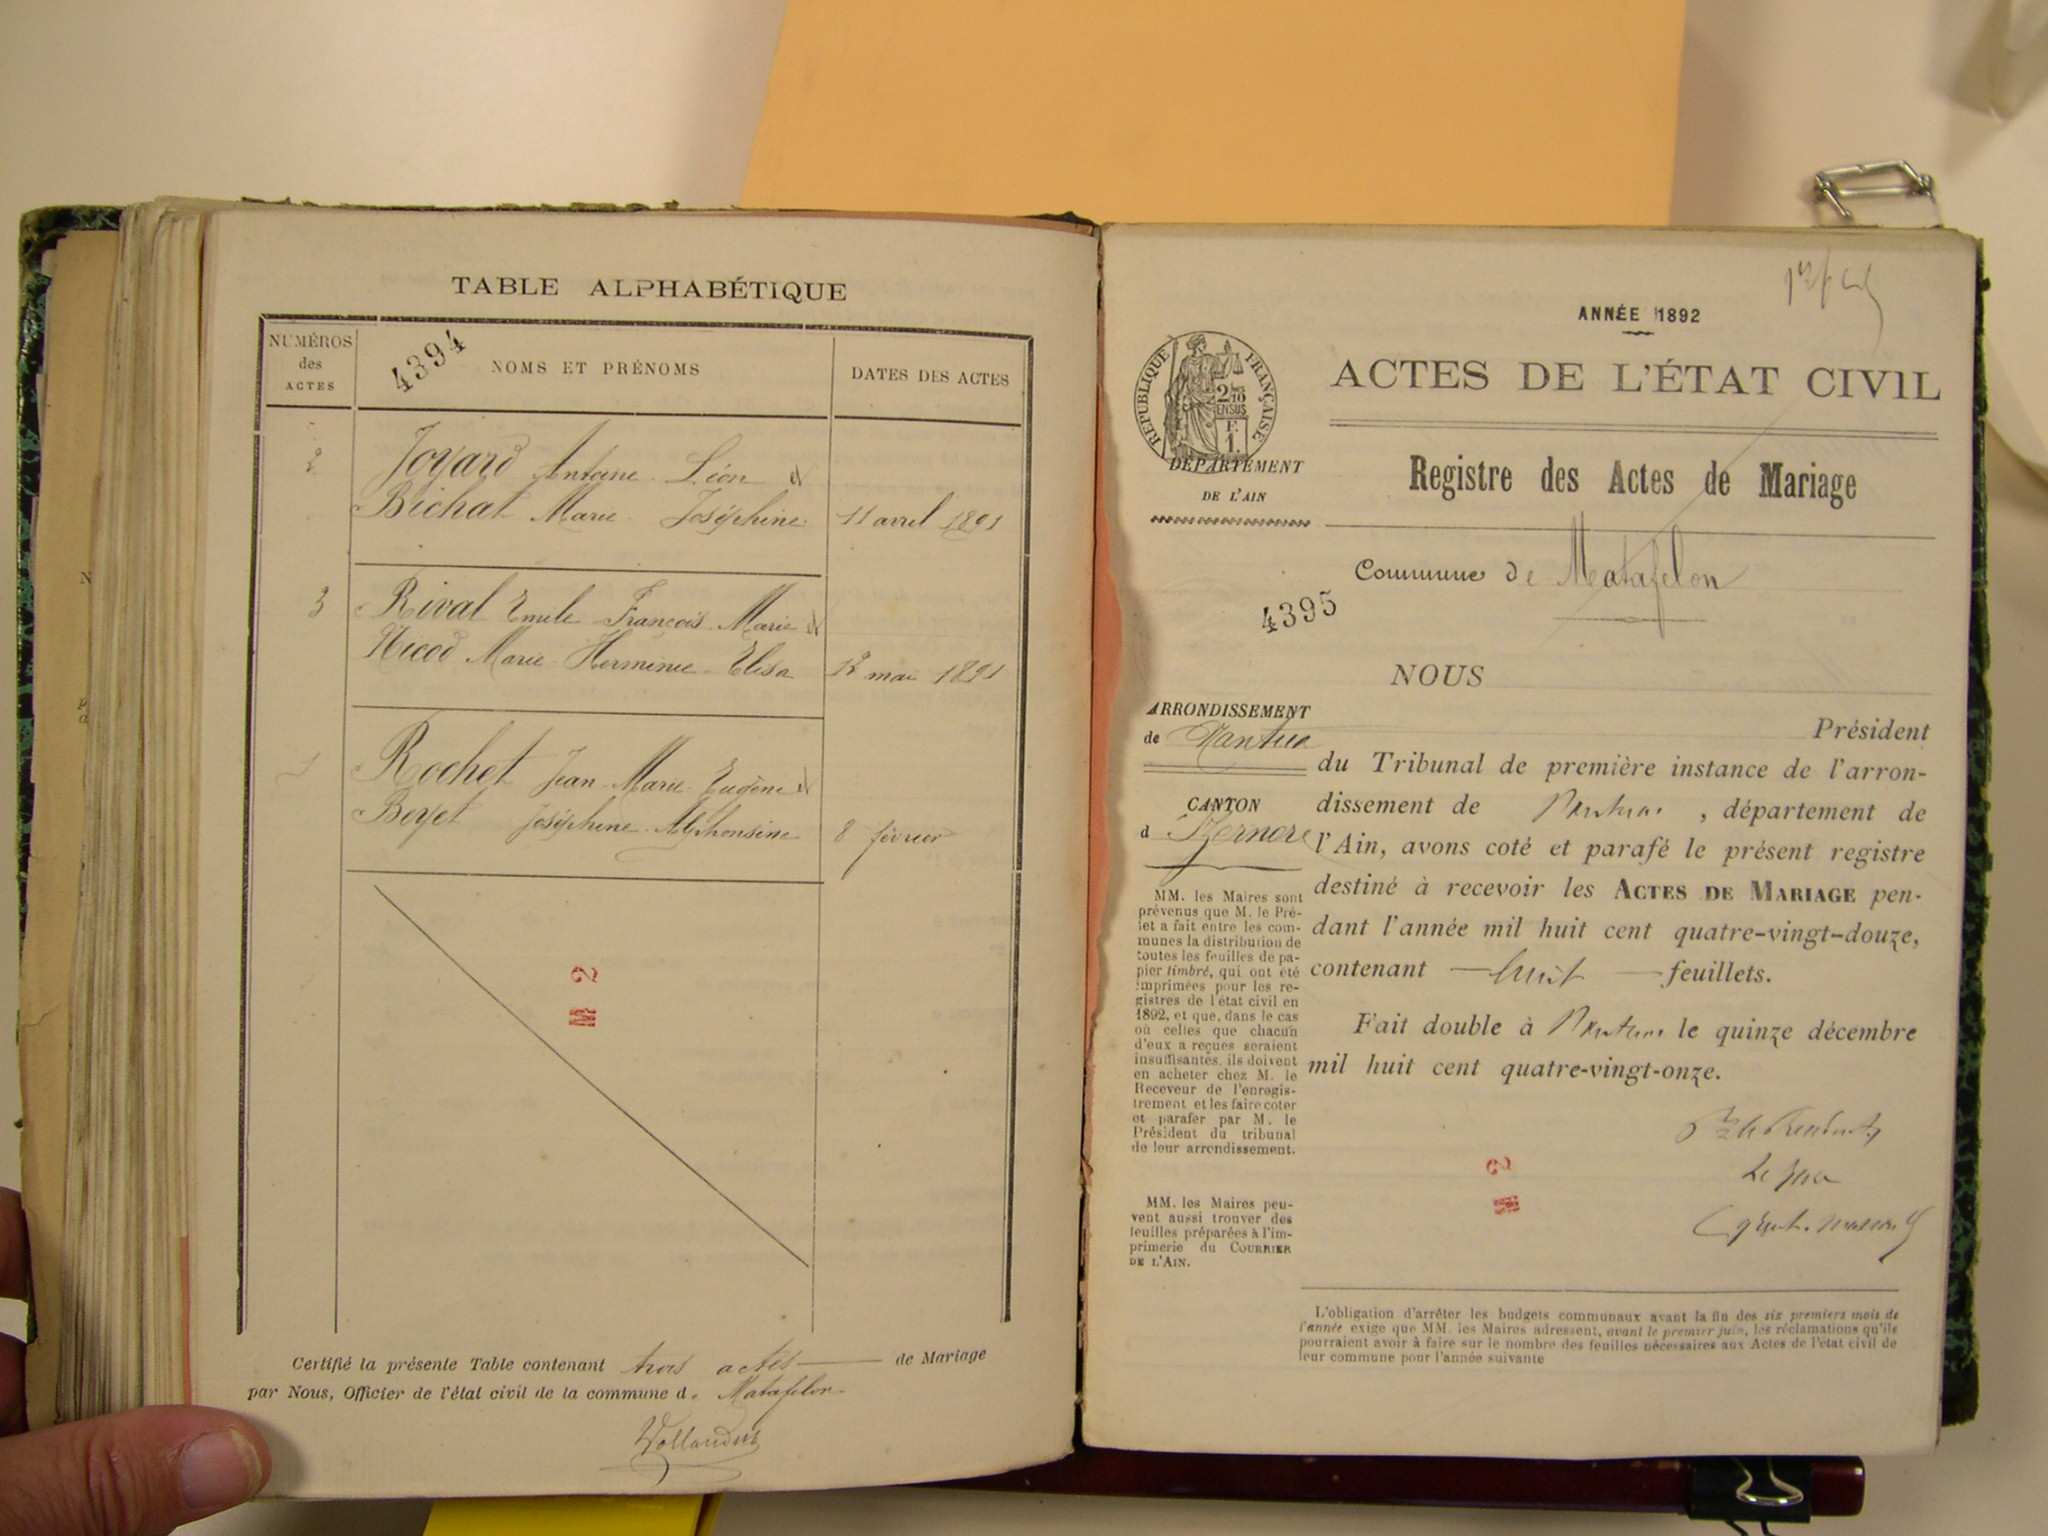 TABLE ALPHABÉTIQUE
NUMÉROS
des
ACTES
4394
NOMS ET PRÉNOMS
DATES DES ACTES
2
Joyard Antoine Léon et
Bichat Marie Joséphine
11 avril 1891
3
Rival Emile François Marie et
Nicod Marie Herminie Elisa
12 mai 1891
1
Rochet Jean Marie Eugène et
Boyet Joséphine Alphonsine
8 février
M 2
Certifié la présente Table contenant trois actes de Mariage
par Nous, Officier de l'état civil de la commune d. Matafelon
ANNÉE 1892
RÉPUBLIQUE FRANÇAISE
ACTES DE L'ÉTAT CIVIL
DÉPARTEMENT
DE L'AIN
Registre des Actes de Mariage
Commune de Matafelon
4395
NOUS
ARRONDISSEMENT
de Nantua
CANTON
d Izernore
Président
du Tribunal de première instance de l'arron-
dissement de Nantua , département de
l'Ain, avons coté et parafé le présent registre
destiné à recevoir les ACTES DE MARIAGE pen-
dant l'année mil huit cent quatre-vingt-douze,
contenant — huit — feuillets.
Fait double à Nantua le quinze décembre
mil huit cent quatre-vingt-onze.
MM. les Maires sont
prévenus que M. le Pré-
fet a fait entre les com-
munes la distribution de
toutes les feuilles de pa-
pier timbré, qui ont été
imprimées pour les re-
gistres de l'état civil en
1892, et que, dans le cas
où celles que chacun
d'eux a reçues seraient
insuffisantes, ils doivent
en acheter chez M. le
Receveur de l'enregis-
trement et les faire coter
et parafer par M. le
Président du tribunal
de leur arrondissement.
MM. les Maires peu-
vent aussi trouver des
feuilles préparées à l'im-
primerie du COURRIER
DE L'AIN.
2 M
L'obligation d'arrêter les budgets communaux avant la fin des six premiers mois de
l'année exige que MM. les Maires adressent, avant le premier juin, les réclamations qu'ils
pourraient avoir à faire sur le nombre des feuilles nécessaires aux Actes de l'état civil de
leur commune pour l'année suivante